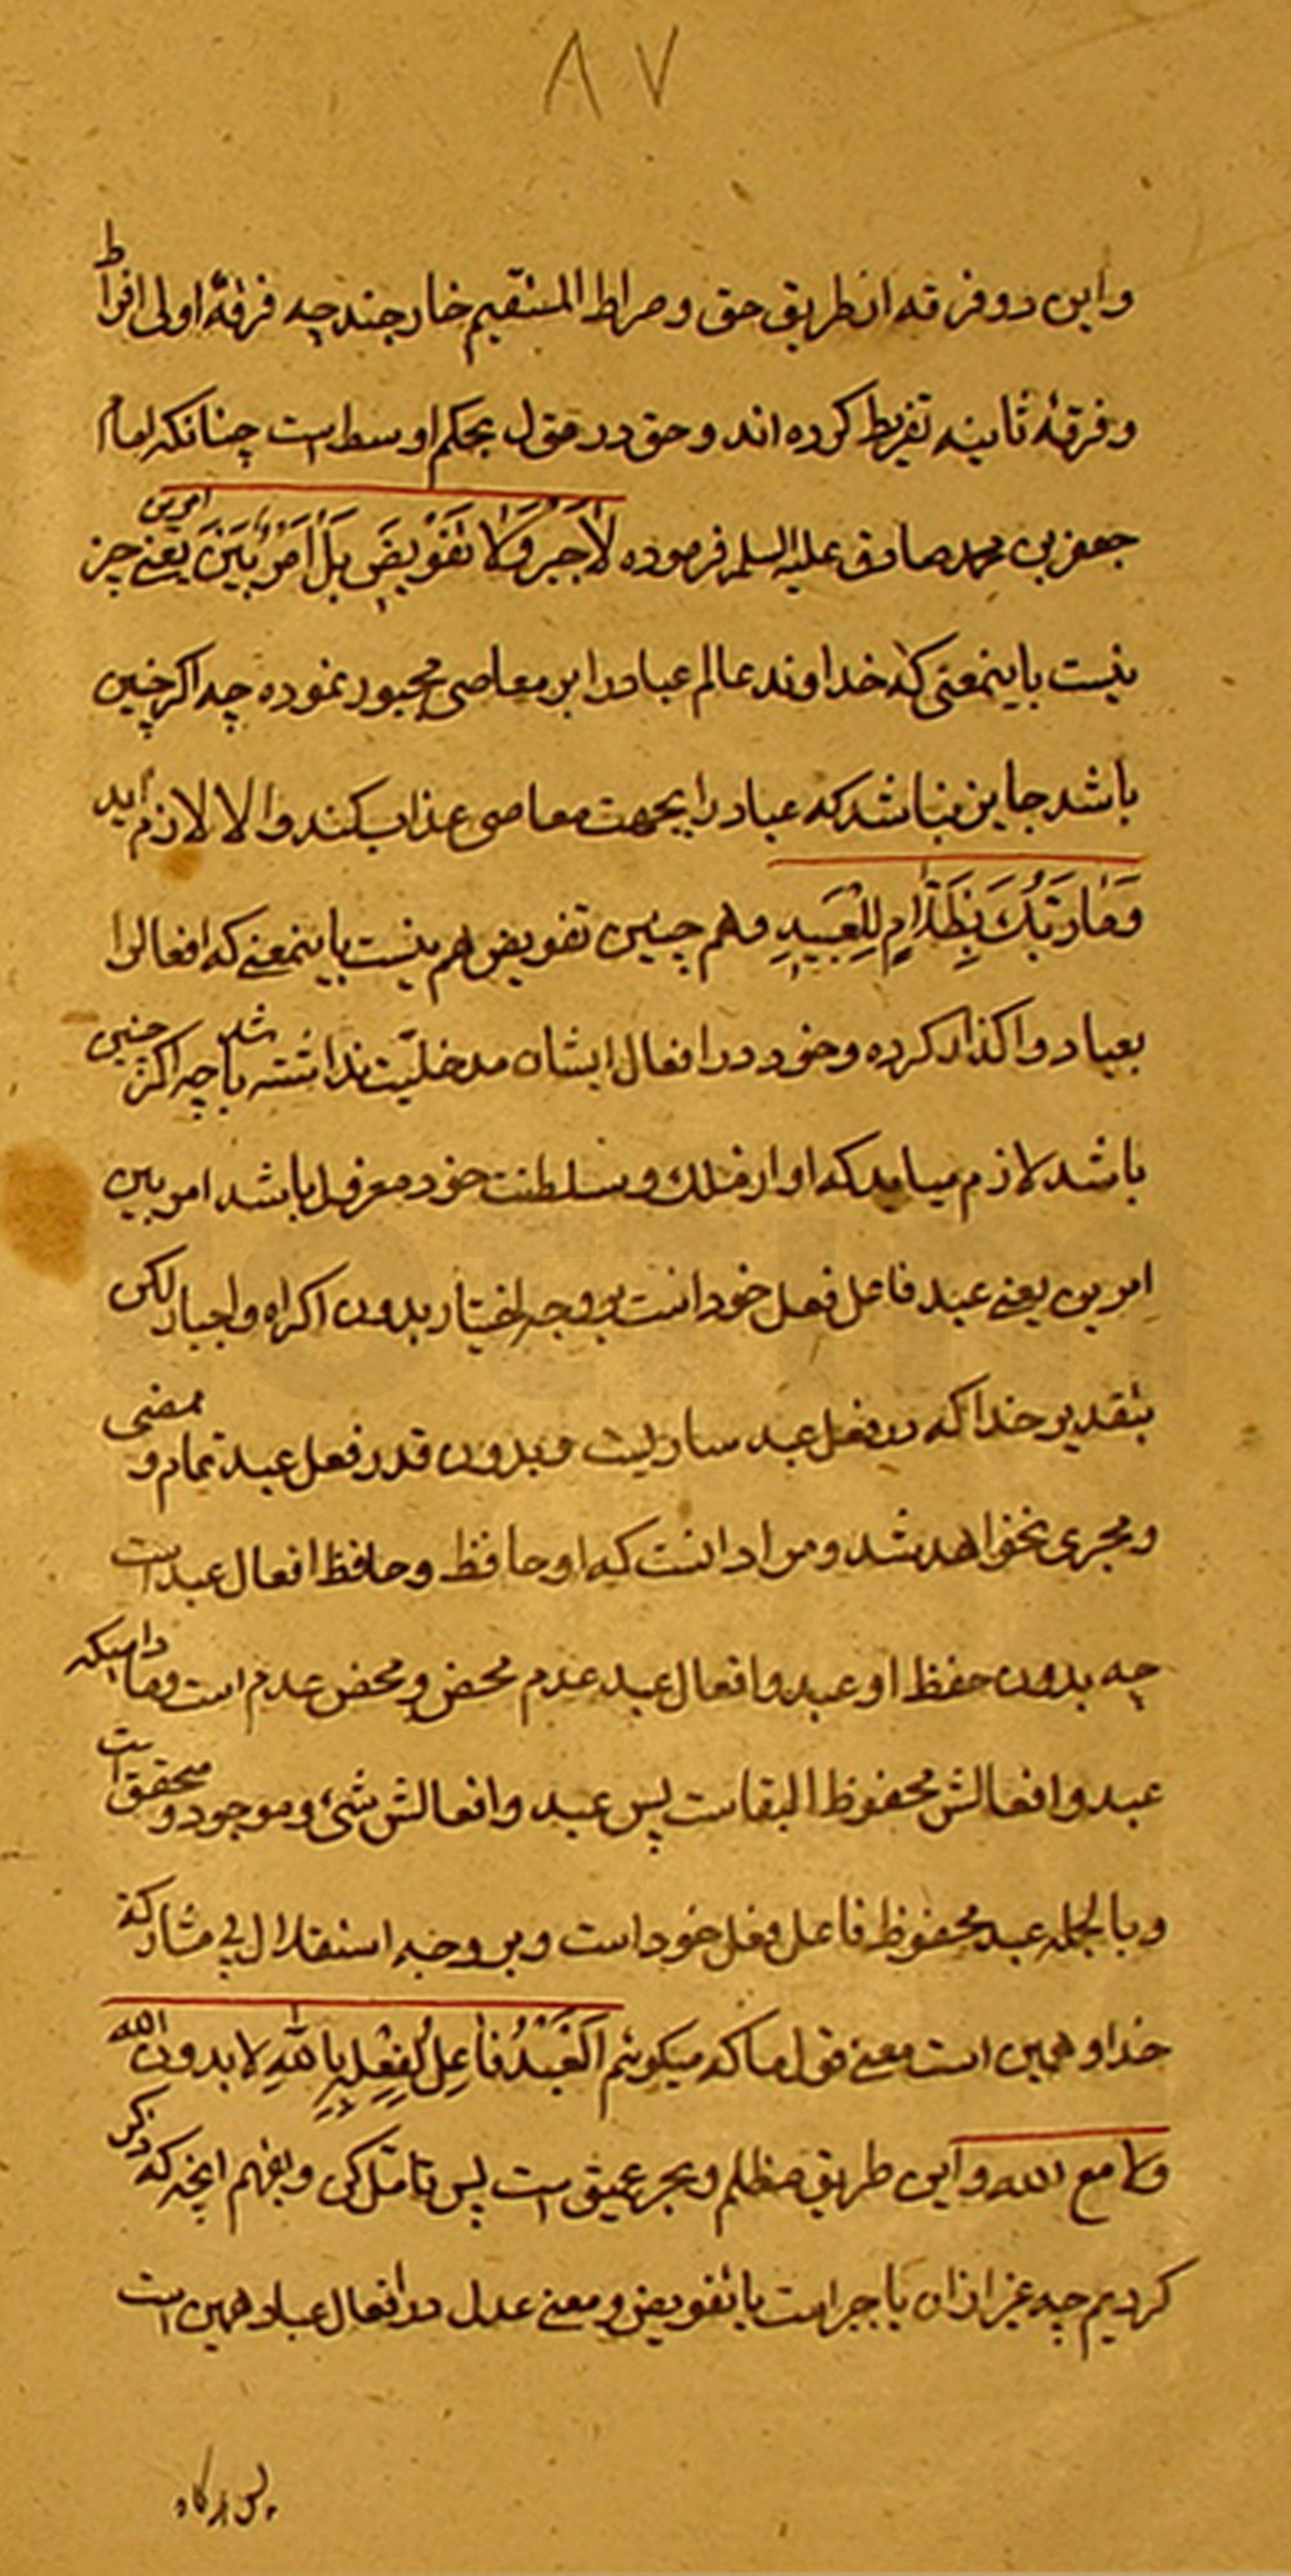 ۸۷
واین دو فرقه از طریق حق و صراط المستقیم خارجند چه فرقهٔ اولی افراط
و فرقهٔ ثانیه تفریط کرده اند و حق در قول بحکم اوسط است چنانکه امام
جعفر بن محمد صادق علیه السلم فرموده لَا جَبْرَ وَلَا تَفْویضَ بَلْ اَمْرٌ بَیْنَ امرین یعنے جبر
نیست باینمعنی که خداوند عالم عباد را بر معاصی مجبور نموده چه اکر چنین
باشد جایز نباشد که عباد را بجهت معاصی عذاب کند والا لازم اید
وَمٰا رَبُّكَ بِظَلّٰامٍ لِلْعَبیدِ و هم چنین تفویض هم نیست باینمعنے که افعالرا
بعباد واکذار کرده و خود در افعال ایشان مدخلیّت نداشته باشد چه اکر چنین
باشد لازم میاید که او از ملك و سلطنت خود معزول باشد امر بین
امرین یعنے عبد فاعل فعل خود است بر وجه اختیار بدون اکراه و اجبار لکن
بتقدیر خدا که در فعل عبد ساریست و بدون قدر فعل عبد تمام و ممضی
و مجری نخواهد شد و مراد انست که او حافظ و حافظ افعال عبد است
چه بدون حفظ او عبد و افعال عبد عدم محض و محض عدم است و مادامیکه
عبد و افعالش محفوظ البقاست پس عبد و افعالش شیء و موجود و متحقق است
و بالجمله عبد محفوظ فاعل فعل خود است و بر وجه استقلال بی مشارکة
خدا و همین است معنے قول ما که میکوئیم اَلْعَبْدُ فٰاعِلٌ لِفِعْلِهِ بِاللّٰهِ لا بدون الله
ولا مع الله و این طریق مظلم و بحر عمیق است پس تامّل کن و بفهم انچه که ذکر
کردیم چه غیر از ان یا جبر است یا تفویض و معنے عدل در افعال عباد همین است
پس هرکاه